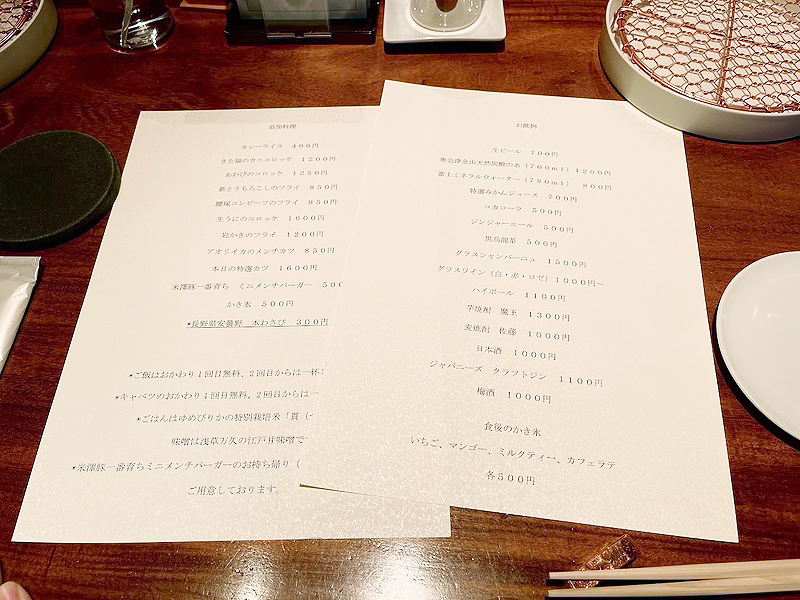 追加料理
カレーライス 400円
きた福のカニコロッケ 1200円
あわびのコロッケ 1250円
新とうもろこしのフライ 850円
腰塚コンビーフのフライ 850円
生うにのコロッケ 1600円
岩かきのフライ 1200円
アオリイカのメンチカツ 850円
本日の特選カツ 1600円
米澤豚一番育ち ミニメンチバーガー 500
かき氷 500円
*長野県安曇野 本わさび 300円
*ご飯はおかわり1回目無料、2回目からは一杯
*キャベツのおかわり1回目無料、2回目からは一
*ごはんはゆめぴりかの特別栽培米「貫(
味噌は浅草万久の江戸甘味噌で
*米澤豚一番育ちミニメンチバーガーのお持ち帰り(
ご用意しております。
お飲物
生ビール 700円
奥会津金山天然炭酸の水(700ml)1200円
富士ミネラルウォーター(780ml) 800円
特選みかんジュース 700円
コカコーラ 500円
ジンジャーエール 500円
黒烏龍茶 500円
グラスシャンパーニュ 1500円
グラスワイン(白・赤・ロゼ)1000円~
ハイボール 1100円
芋焼酎 魔王 1300円
麦焼酎 佐藤 1000円
日本酒 1000円
ジャパニーズ クラフトジン 1100円
梅酒 1000円
食後のかき氷
いちご、マンゴー、ミルクティー、カフェラテ
各500円